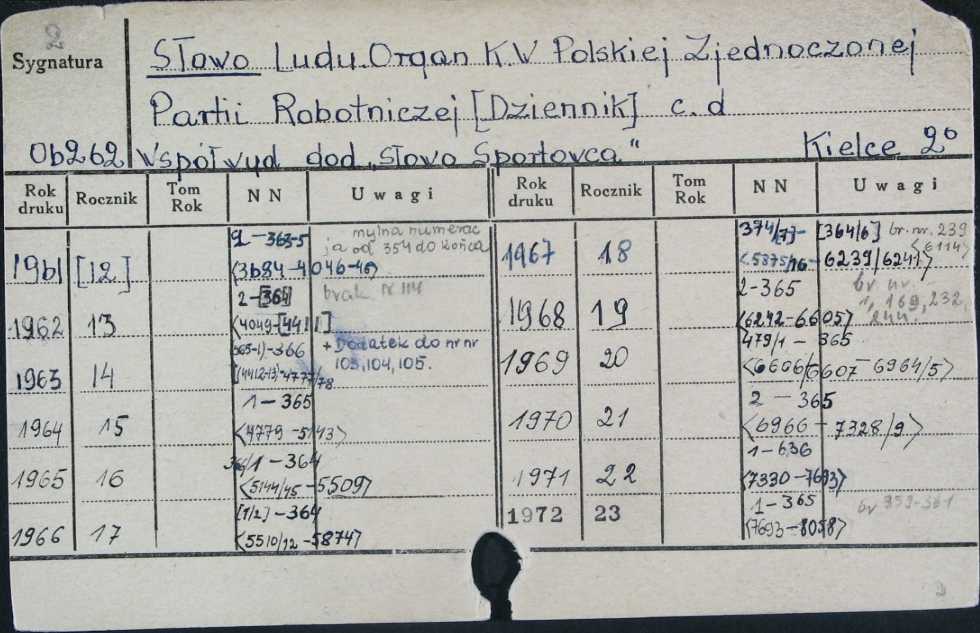 2
Sygnatura
Słowo Ludu. Organ K.W Polskiej Zjednoczonej
Partii Robotniczej [Dziennik] c.d
Ob262 Współwyd dod „Słowo Sportowca" Kielce 2°
Rok druku Rocznik Tom Rok NN Uwagi Rok druku Rocznik Tom Rok NN Uwagi
1961 [12] 2-363-5 mylna numeracja od 354 do końca
<3684-4046-46>
1962 13 2-[364] brak nr 114
<4049-[4411]
1963 14 365-1)-366 + Dodatek do nr nr 103,104,105.
[(4412-13) 4777/78
1964 15 1-365
<4779-5143>
1965 16 366/1-364
<5144/45-5509>
1966 17 [1/2]-364
<5510/12-5874>
1967 18 [364/6] br. nr. 239 <6114>
<5875/76-6239/6241>
1968 19 2-365 br nr. 169, 232, 244.
<6242-6605>
1969 20 479/1-365
<6606/6607 6964/5>
1970 21 2-365
<6966-7328/9>
1971 22 1-636
<7330-7693>
1972 23 1-365 br 359-361
<7693-8058>
2